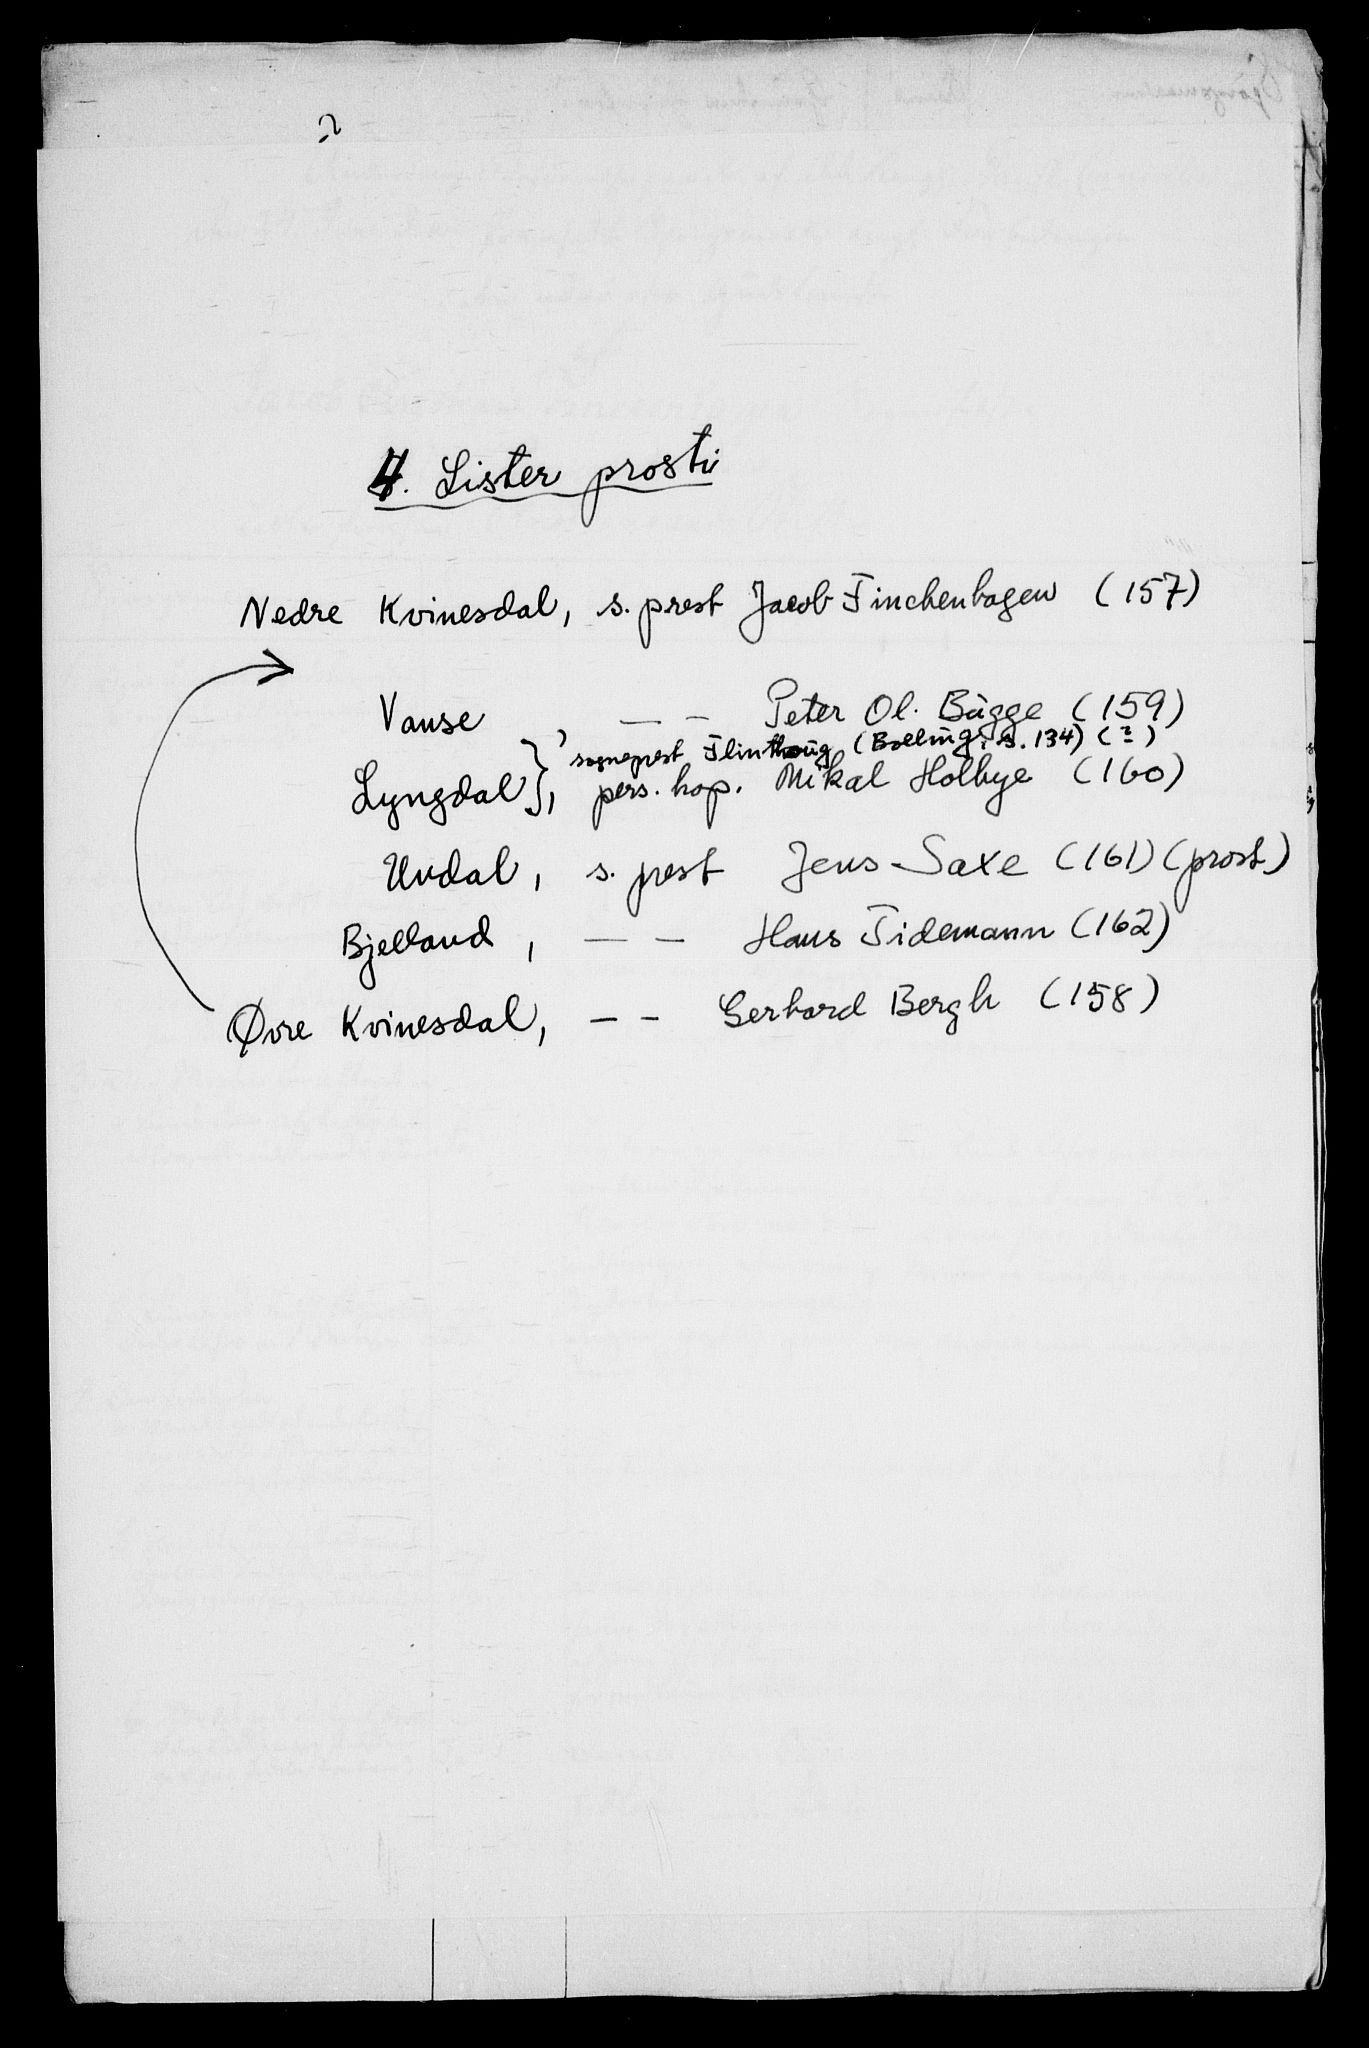 4. Lister prosti
Nedre Kvinesdal, s. prest Jacob Finchenhagen (157)
Vanse, — — Peter Ol. Bugge (159)
sogneprest Flinthoug (Bolling, s. 134) (?)
Lyngdal}, pers. kap. Mikal Holbye (160)
Undal, s. prest Jens Saxe (161) (prost)
Bjelland, — — Hans Tidemann (162)
Øvre Kvinesdal, — — Gerhard Bergh (158)